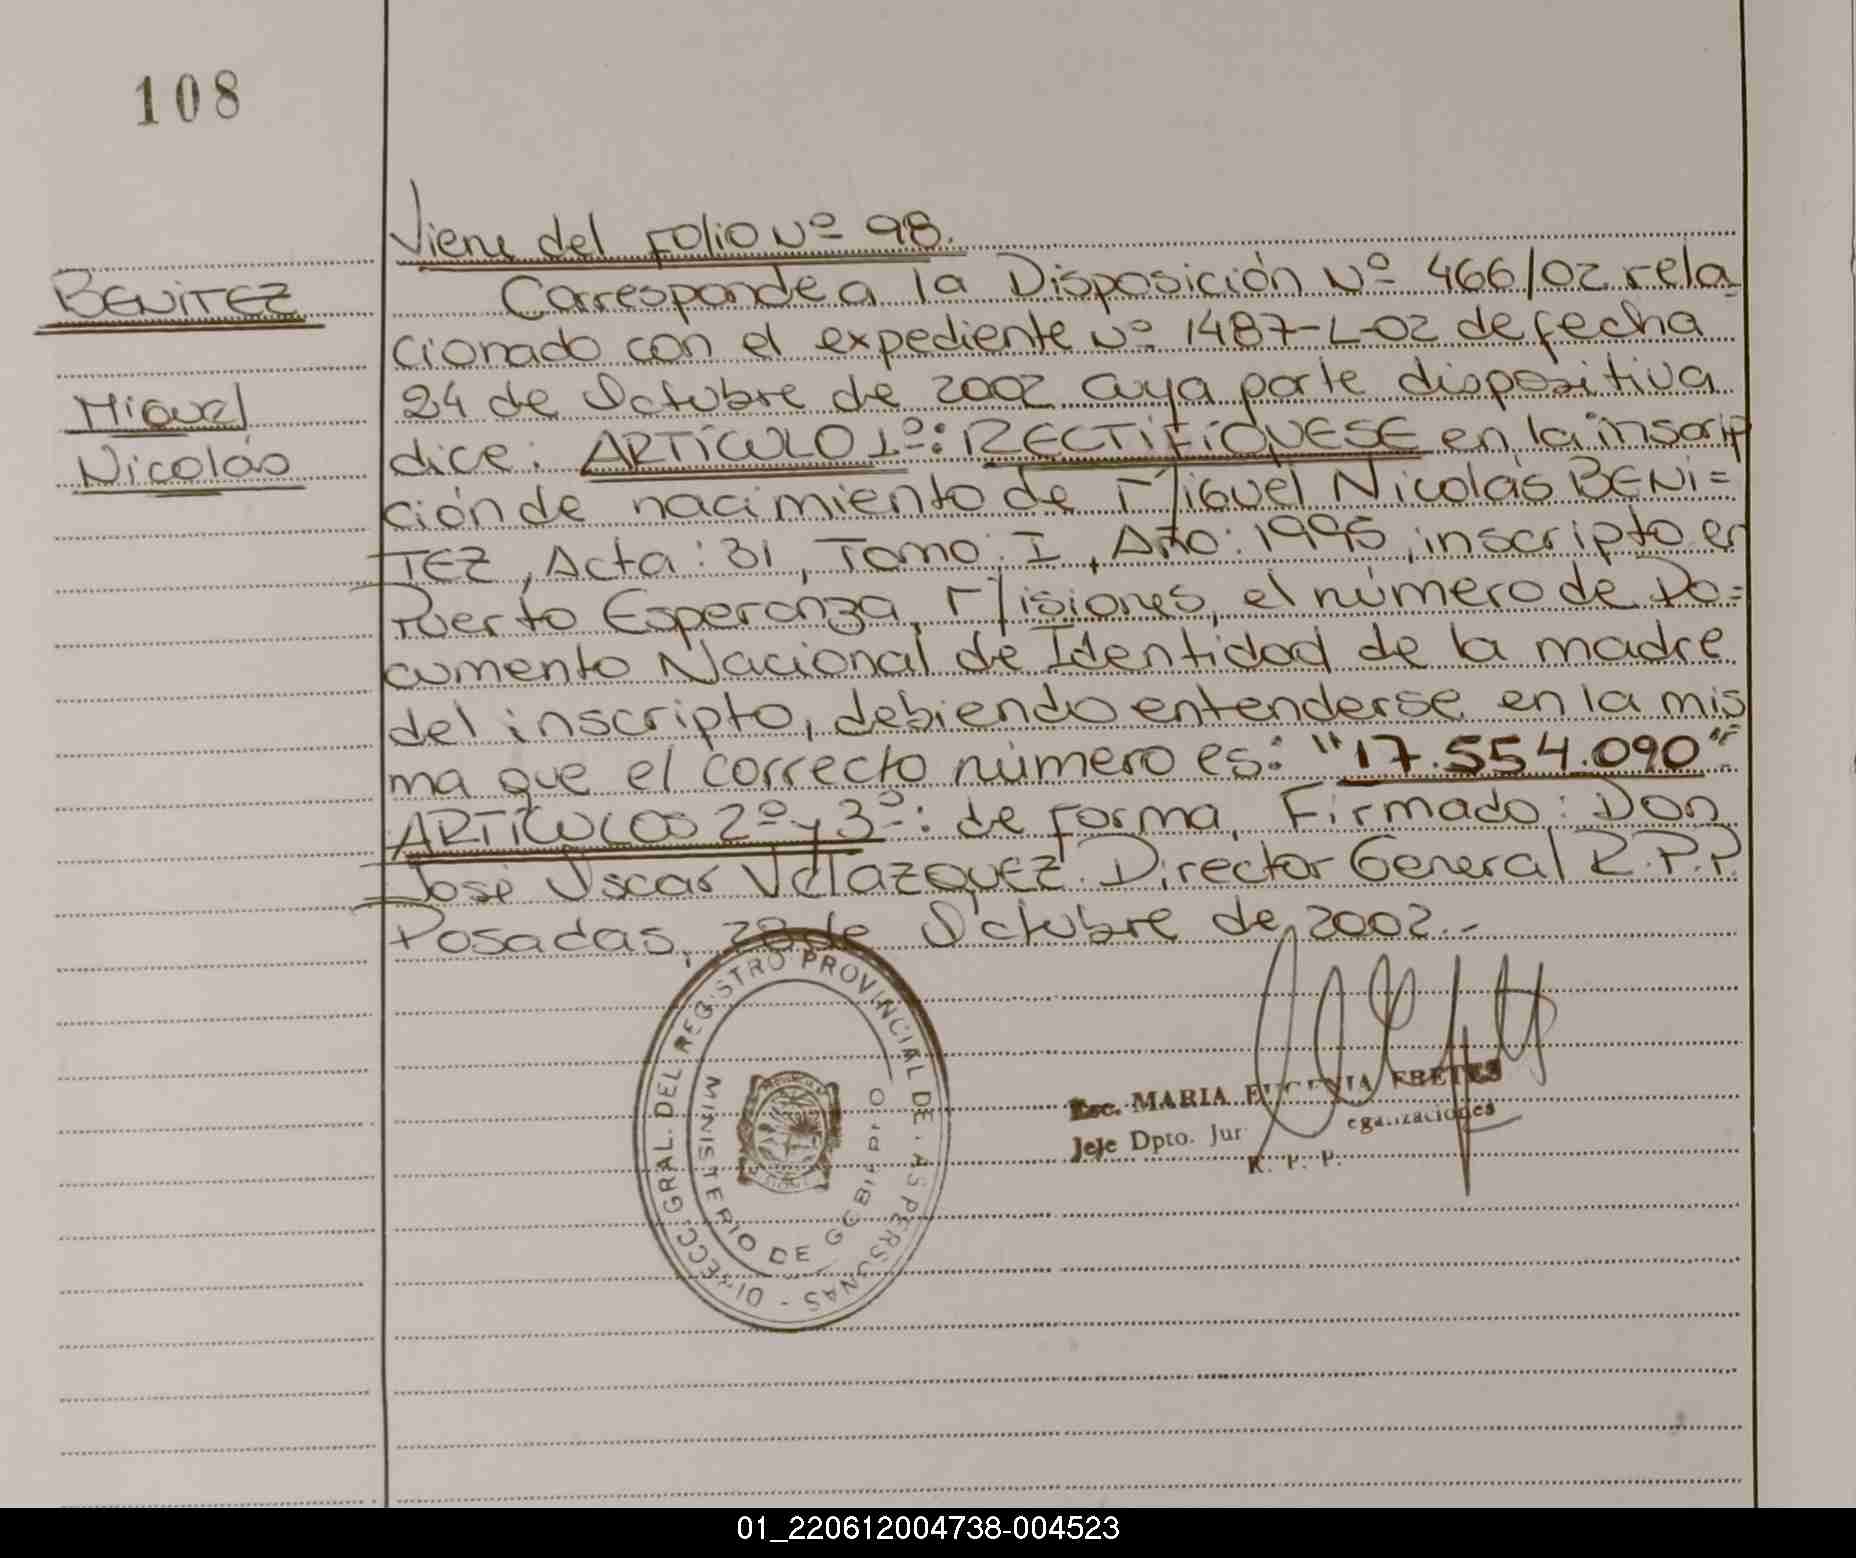 108
Viene del Folio Nº 98.
BENITEZ
Miguel
Nicolás
Corresponde a la Disposición Nº 466/02 rela-
cionado con el expediente Nº 1487-L-02 de fecha
24 de Octubre de 2002 cuya parte dispositiva
dice: ARTÍCULO 1º: RECTIFÍQUESE en la inscrip
ción de nacimiento de Miguel Nicolás BENI=
TEZ, Acta: 31, Tomo: I, Año: 1995, inscripto en
Puerto Esperanza, Misiones, el número de Do=
cumento Nacional de Identidad de la madre
del inscripto, debiendo entenderse en la mis
ma que el correcto número es: "17.554.090"
ARTÍCULOS 2º y 3º: de forma, Firmado: Don
José Oscar VELAZQUEZ. Director General R.P.P.
Posadas, 28 de Octubre de 2002.-
DIRECC. GRAL. DEL REGISTRO PROVINCIAL DE LAS PERSONAS -
MINISTERIO DE GOBIERNO
Esc. MARIA EUGENIA FRETES
Jefe Dpto. Jur egalizaciones
R. P. P.
01_220612004738-004523